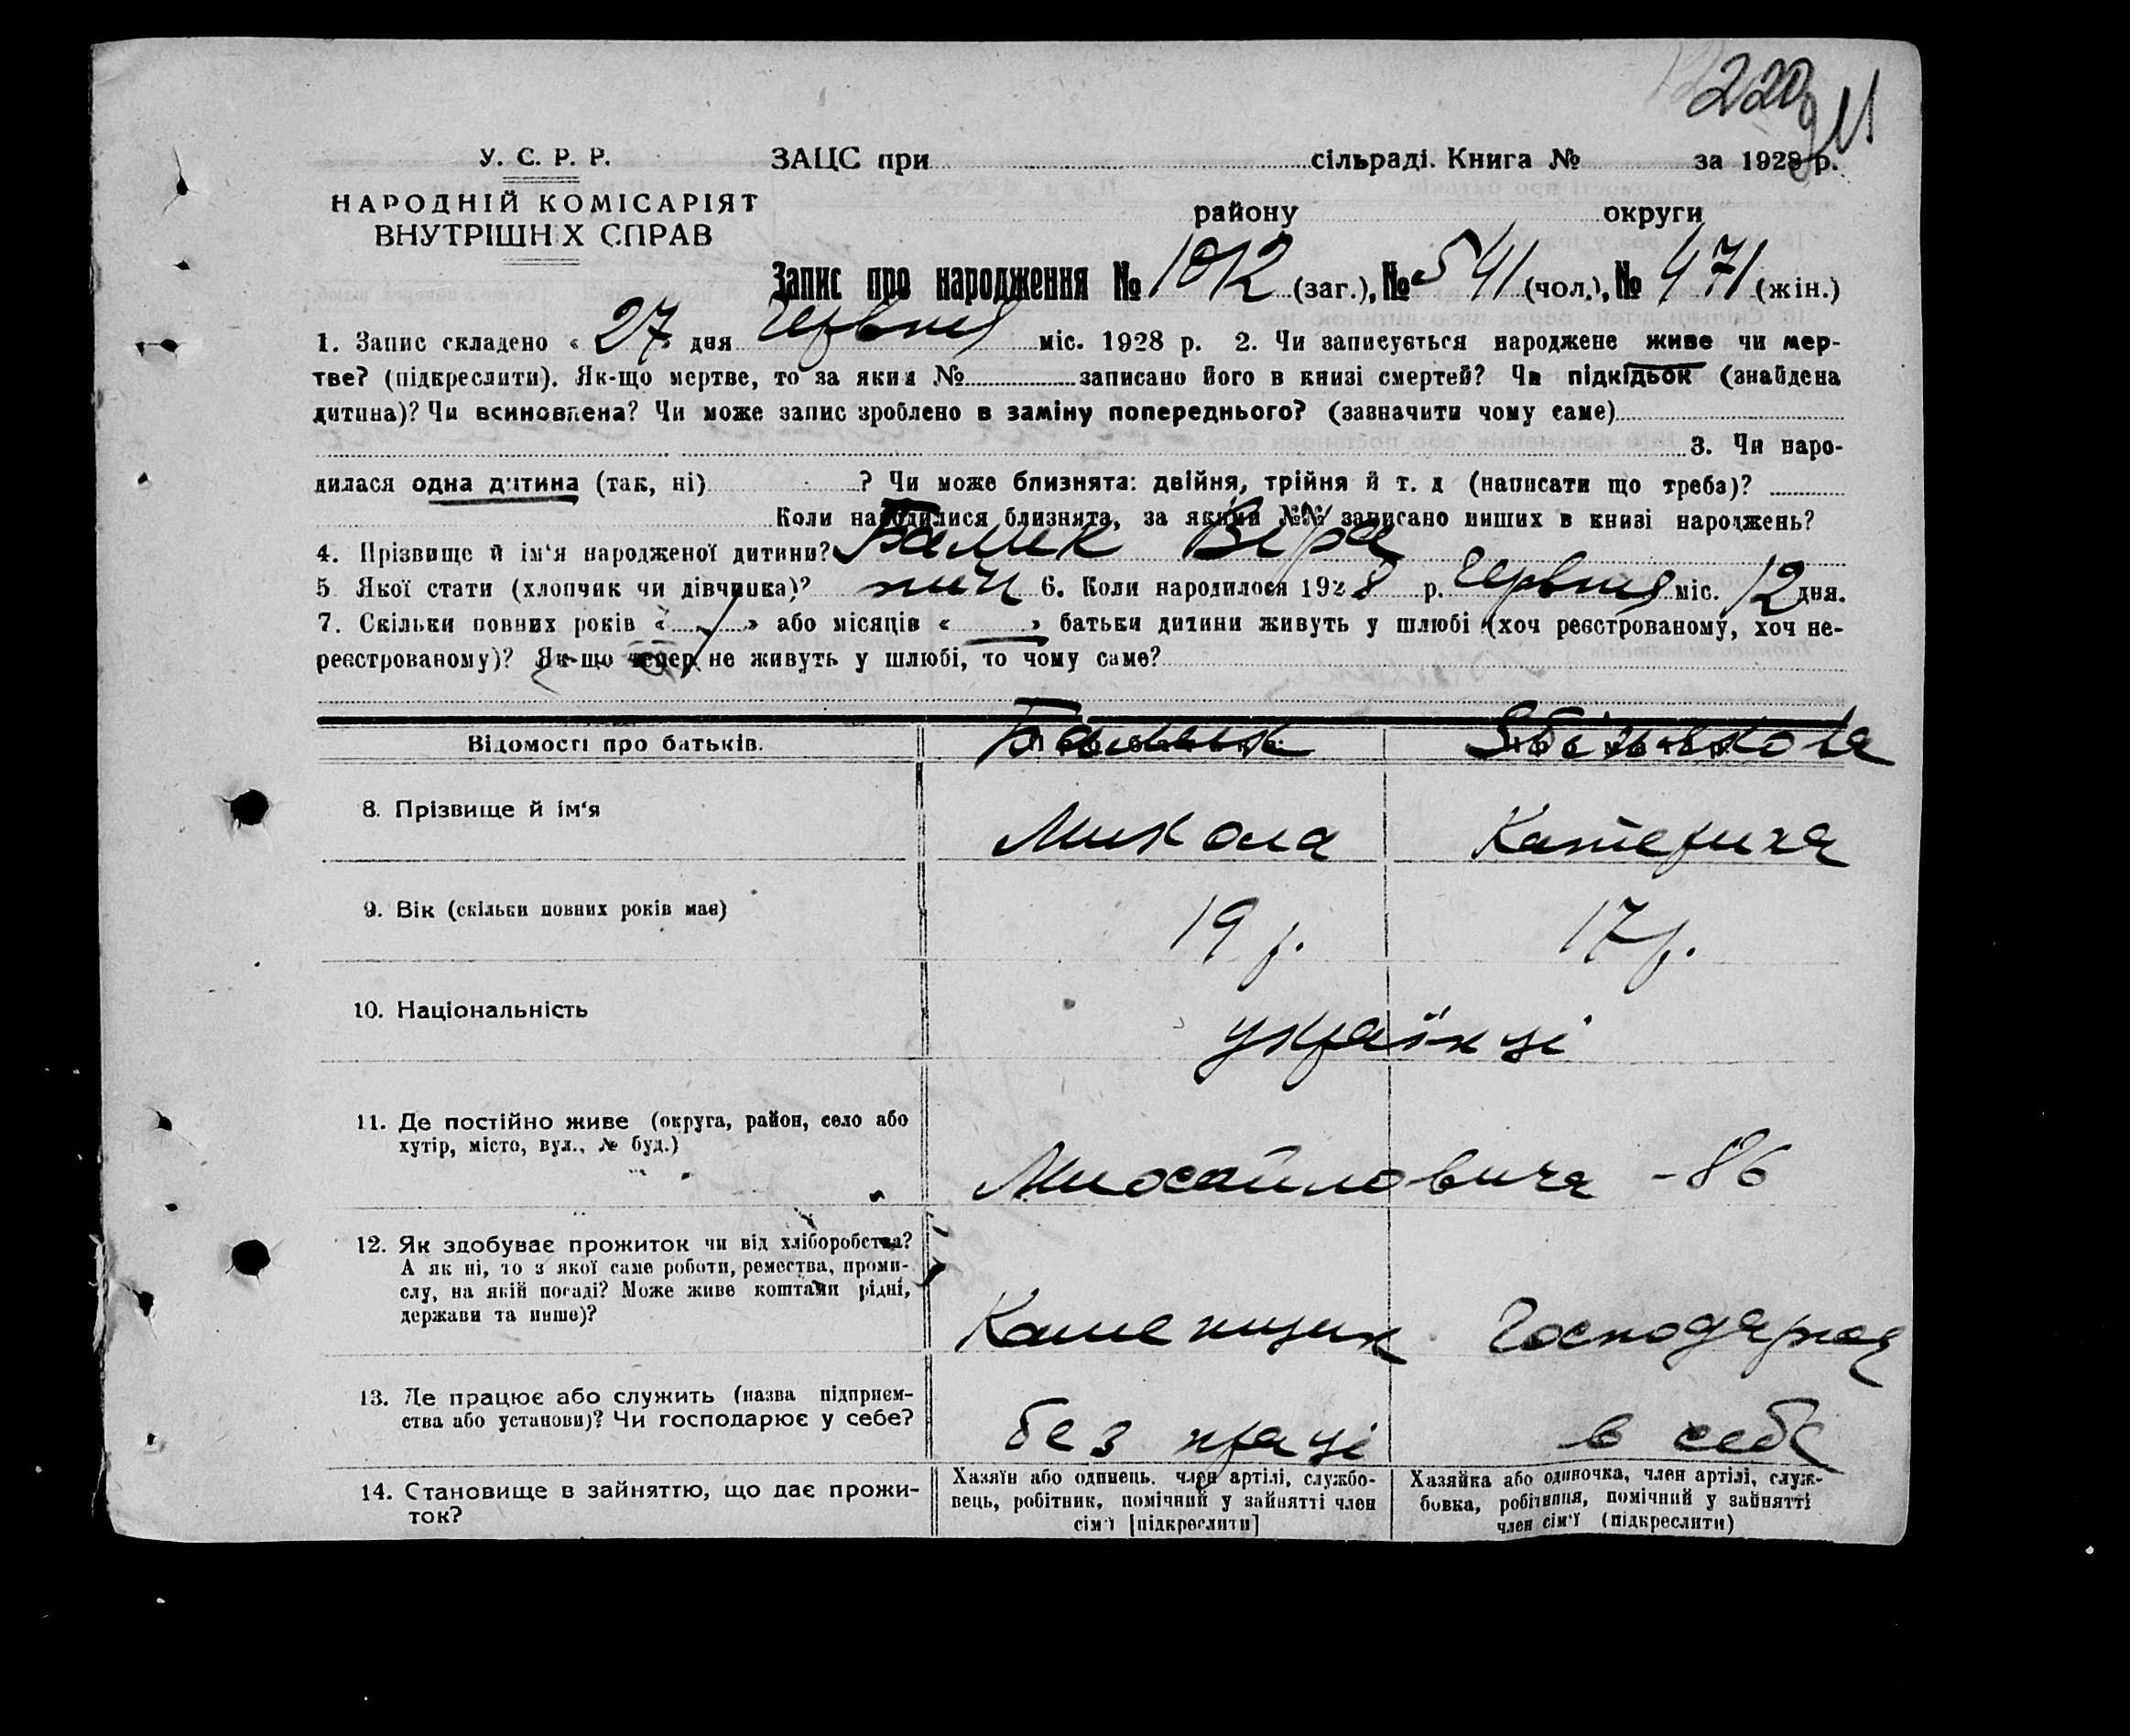 220
У. С. Р. Р.
НАРОДНІЙ КОМІСАРІЯТ
ВНУТРІШНІХ СПРАВ
ЗАЦС при сільраді. Книга № за 1928 р.
району округи
Запис про народження № 1012 (заг.), № 541 (чол.), № 471 (жін.)
1. Запис складено « 27 » дня червня міс. 1928 р. 2. Чи записується народжене живе чи мер-
тве? (підкреслити). Як-що мертве, то за яким № записано його в книзі смертей? Чи підкідьок (знайдена
дитина)? Чи всиновлена? Чи може запис зроблено в заміну попереднього? (зазначити чому саме)
3. Чи наро-
дилася одна дитина (так, ні) ? Чи може близнята: двійня, трійня й т. д (написати що треба)?
Коли народилися близнята, за якими №№ записано инших в книзі народжень?
4. Прізвище й ім‘я народженої дитини? Балик Віра
5. Якої стати (хлопчик чи дівчинка)? 6. Коли народилося 1928 р. червня міс. 12 дня.
7. Скільки повних років « » або місяців « » батьки дитини живуть у шлюбі (хоч реєстрованому, хоч не-
реєстрованому)? Як-що тепер не живуть у шлюбі, то чому саме?
Відомості про батьків. Балик
8. Прізвище й ім‘я Микола Катерина
9. Вік (скільки повних років має) 19 р. 17 р.
10. Національність українці
11. Де постійно живе (округа, район, село або
хутір, місто, вул., № буд.)
Михайловича - 86
12. Як здобуває прожиток чи від хліборобства?
А як ні, то з якої саме роботи, ремества, проми-
слу, на якій посаді? Може живе коштами рідні,
держави та инше)?
Каменщик Господарює
13. Де працює або служить (назва підприєм-
ства або установи)? Чи господарює у себе?
без праці в себе
14. Становище в зайняттю, що дає прожи-
ток?
Хазяїн або одинець, член артілі, службо-
вець, робітник, помічний у зайнятті член
сім‘ї [підкреслити]
Хазяйка або одиночка, член артілі, служ-
бовка, робітниця, помічний у зайнятті
член сім‘ї (підкреслити)